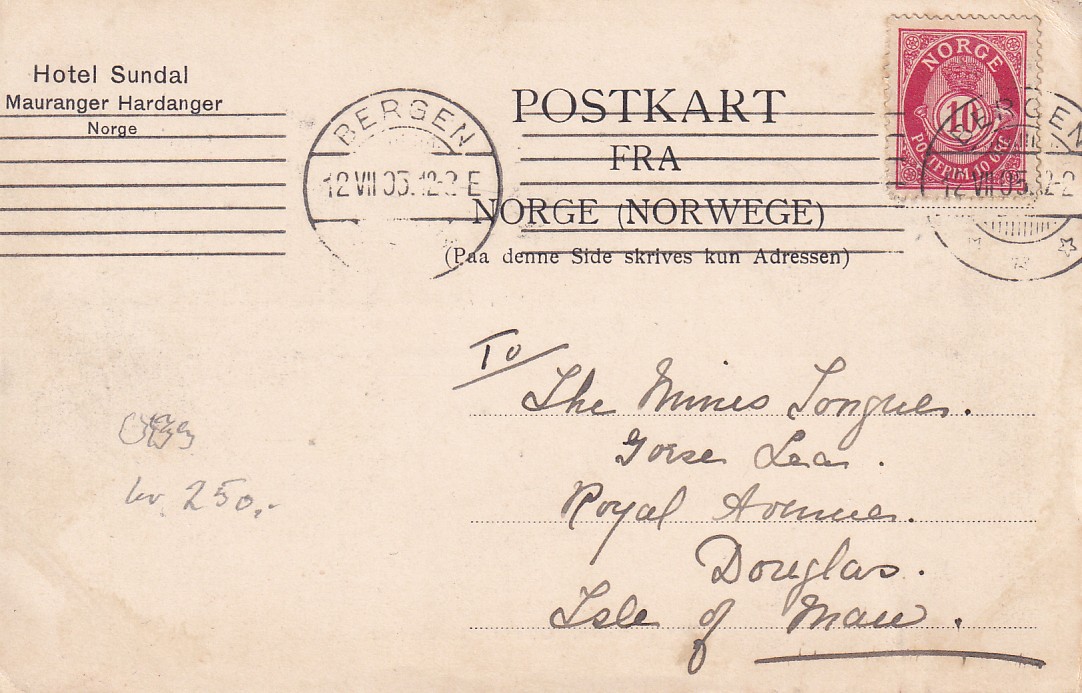 Hotel Sundal
Mauranger Hardanger
Norge
BERGEN
12 VII 05. 12-2 E
POSTKART
FRA
NORGE (NORWEGE)
(Paa denne Side skrives kun Adressen)
NORGE
10
POSTFRIM. 10 ØRE
BERGEN
12 VII 05. 12-2
To
The Misses Tongue.
Gorse Lea.
Royal Avenue.
Douglas.
Isle of Man.
kr. 250,-